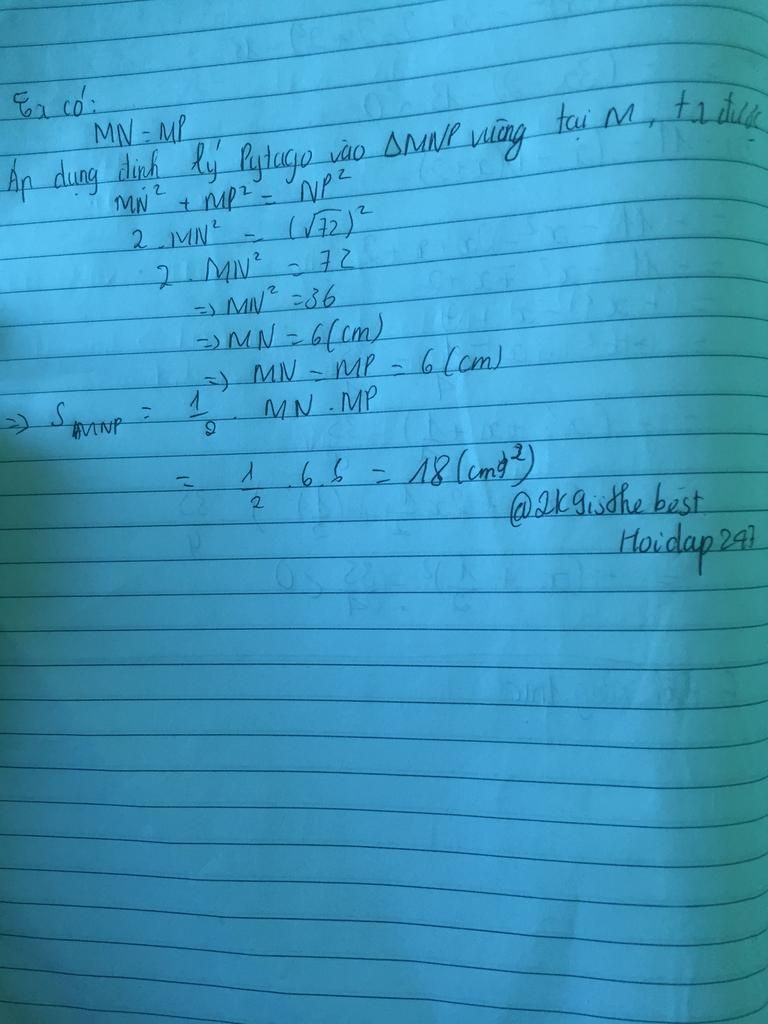 Ta có:
MN = MP
Áp dụng định lý Pytago vào ΔMNP vuông tại M, ta được
MN² + MP² = NP²
2. MN² = (√72)²
2. MN² = 72
=> MN² = 36
=> MN = 6(cm)
=> MN = MP = 6(cm)
=> S ΔMNP = 1/2 . MN . MP
= 1/2 . 6.6 = 18(cm²)
@2K9isthe best
Hoidap247